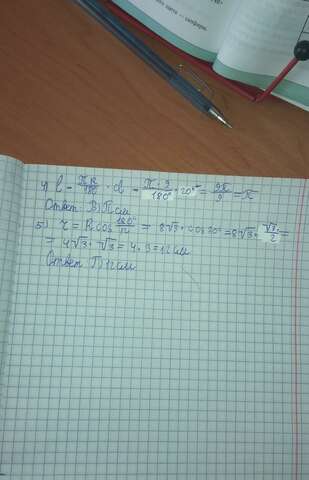 4) l = πR/180° · α = π · 9/180° · 20° = 9π/9 = π
Ответ: В) П см
5) r = R cos 180°/n = 8√3 · cos 30° = 8√3 · √3/2 =
= 4√3 · √3 = 4 · 3 = 12 см
Ответ Г) 12 см